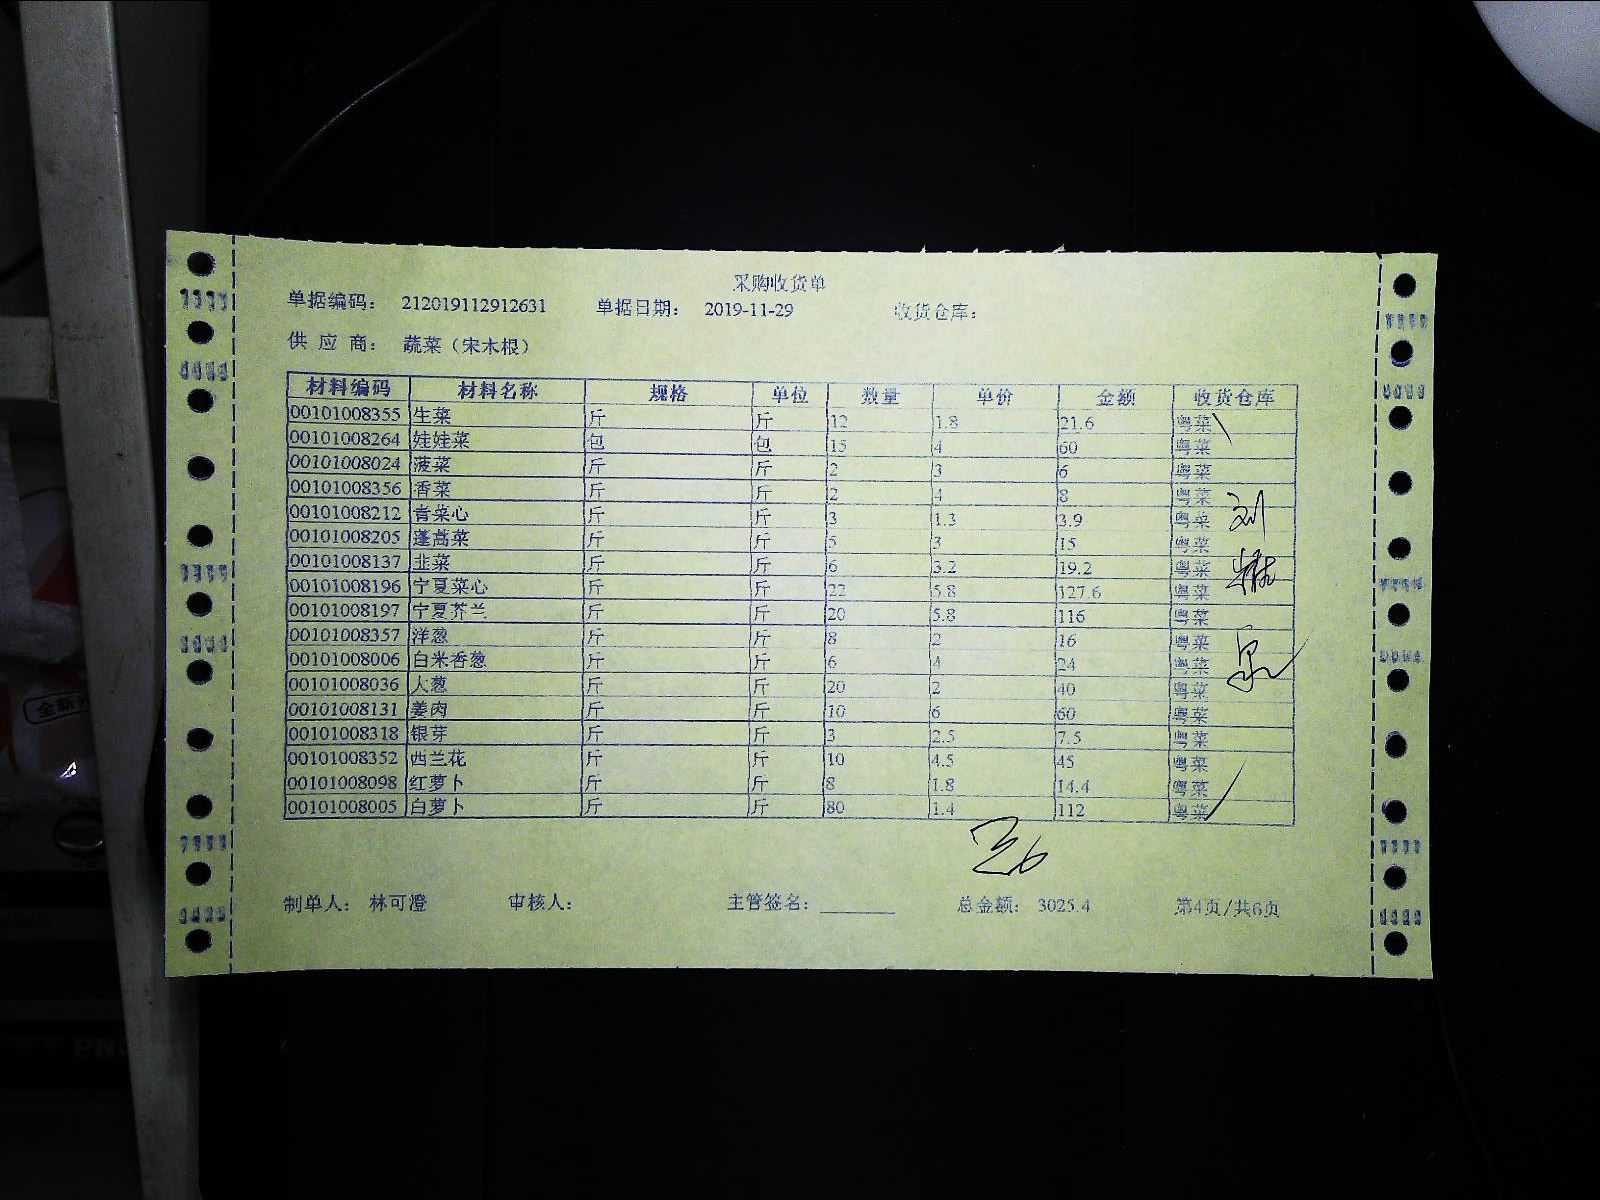 采购收货单
单据编码： 212019112912631 单据日期： 2019-11-29 收货仓库：
供 应 商： 蔬菜（宋木根）
材料编码 材料名称 规格 单位 数量 单价 金额 收货仓库
00101008355 生菜 斤 斤 12 1.8 21.6 粤菜
00101008264 娃娃菜 包 包 15 4 60 粤菜
00101008024 菠菜 斤 斤 2 3 6 粤菜
00101008356 香菜 斤 斤 2 4 8 粤菜
00101008212 青菜心 斤 斤 3 1.3 3.9 粤菜
00101008205 蓬蒿菜 斤 斤 5 3 15 粤菜
00101008137 韭菜 斤 斤 6 3.2 19.2 粤菜
00101008196 宁夏菜心 斤 斤 22 5.8 127.6 粤菜
00101008197 宁夏芥兰 斤 斤 20 5.8 116 粤菜
00101008357 洋葱 斤 斤 8 2 16 粤菜
00101008006 白米香葱 斤 斤 6 4 24 粤菜
00101008036 大葱 斤 斤 20 2 40 粤菜
00101008131 姜肉 斤 斤 10 6 60 粤菜
00101008318 银芽 斤 斤 3 2.5 7.5 粤菜
00101008352 西兰花 斤 斤 10 4.5 45 粤菜
00101008098 红萝卜 斤 斤 8 1.8 14.4 粤菜
00101008005 白萝卜 斤 斤 80 1.4 112 粤菜
制单人： 林可澄 审核人： 主管签名：_______ 总金额： 3025.4 第4页/共6页